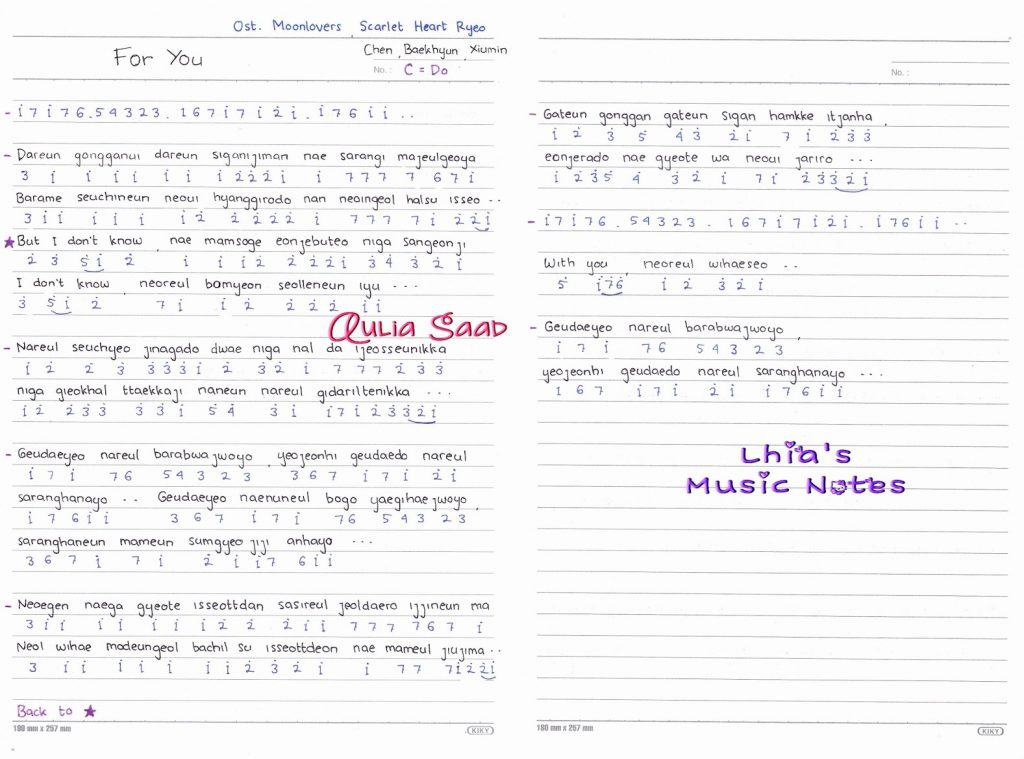 Ost. Moonlovers, Scarlet Heart Ryeo
For You
Chen, Baekhyun, Xiumin
No.: C = Do
- i 7 i 7 6 . 5 4 3 2 3 . 1 6 7 i 7 i 2̇ i . i 7 6 i i . .
- Dareun gongganui dareun siganijiman nae sarangi majeulgeoya
3 i i i i i i i 2̇ 2̇ 2̇ i i 7 7 7 7 6 7 i
Barame seuchineun neoui hyanggirodo nan neoingeol halsu isseo . .
3 i i i i i i 2̇ 2̇ 2̇ 2̇ 2̇ i 7 7 7 7 i 2̇ 2̇ i
★ But I don't know, nae mamsoge eonjebuteo niga sangeonji
2̇ 3̇ 5̇ i 2̇ i i i 2̇ 2̇ 2̇ 2̇ i 3̇ 4̇ 3̇ 2̇ i
I don't know, neoreul bomyeon seolleneun iyu . . .
3̇ 5̇ i 2̇ 7 i i 2̇ 2̇ 2̇ 2̇ i i
Qulia Saad
- Nareul seuchyeo jinagado dwae niga nal da ijeosseunikka
i 2̇ 2̇ 3̇ 3̇ 3̇ 3̇ i 2̇ 3̇ 2̇ i 7 7 7 2̇ 3̇ 3̇
niga gieokhal ttaekkaji naneun nareul gidariltenikka . . .
i 2̇ 2̇ 3̇ 3̇ 3̇ 3̇ i 5̇ 4̇ 3̇ i i 7 i 2̇ 3̇ 3̇ 2̇ i
- Geudaeyeo nareul barabwajwoyo, yeojeonhi geudaedo nareul
i 7 i 7 6 5 4 3 2 3 3 6 7 i 7 i 2̇ i
saranghanayo . . Geudaeyeo naenuneul bogo yaegihaejwoyo,
i 7 6 i i 3 6 7 i 7 i 7 6 5 4 3 2 3
saranghaneun mameun sumgyeojiji anhayo . . .
3 6 7 i 7 i 2̇ i i 7 6 i i
- Neoegen naega gyeote isseottdan sasireul jeoldaero ijjineun ma
3 i i i i i i i 2̇ 2̇ 2̇ i i 7 7 7 7 6 7 i
Neol wihae modeungeol bachil su isseottdeon nae mameul jiujima . .
3 i i i i i i i 2̇ 3̇ 2̇ i i 7 7 7 i 2̇ 2̇ i
Back to ★
180 mm x 257 mm
KIKY
No.:
- Gateun gonggan gateun sigan hamkke itjanha,
i 2̇ 3̇ 5̇ 4̇ 3̇ 2̇ i 7 i 2̇ 3̇ 3̇
eonjerado nae gyeote wa neoui jariro . . .
i 2̇ 3̇ 5̇ 4̇ 3̇ 2̇ i 7 i 2̇ 3̇ 3̇ 2̇ i
- i 7 i 7 6 . 5 4 3 2 3 . 1 6 7 i 7 i 2̇ i . i 7 6 i i . .
With you, neoreul wihaeseo . .
5 i 7 6 i 2̇ 3̇ 2̇ i
- Geudaeyeo nareul barabwajwoyo,
i 7 i 7 6 5 4 3 2 3
yeojeonhi geudaedo nareul saranghanayo . . .
i 6 7 i 7 i 2̇ i i 7 6 i i
Lhia's
Music Notes
180 mm x 257 mm
KIKY